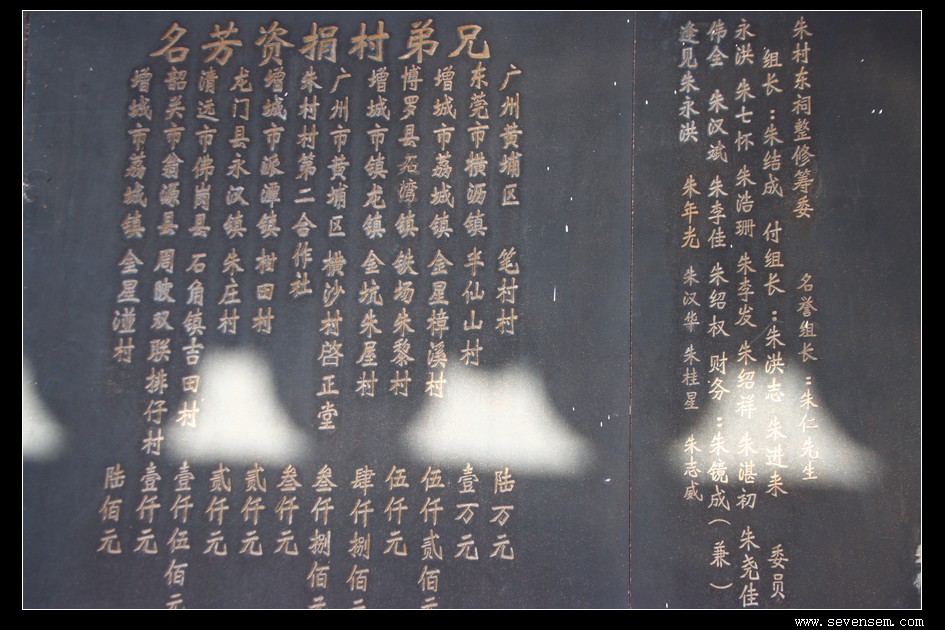 朱村东祠整修筹委 名誉组长：朱仁先生
组长：朱结成 付组长：朱洪志 朱进来 委员
永洪 朱七怀 朱浩珊 朱李发 朱绍祥 朱湛初 朱尧佳
伟全 朱汉斌 朱李佳 朱绍权 财务：朱镜成（兼）
逢见 朱永洪 朱年光 朱汉华 朱桂星 朱志威
兄弟村捐资芳名
广州黄埔区 笔村村 陆万元
东莞市横沥镇 半仙山村 壹万元
增城市荔城镇 金星樟溪村 伍仟贰佰元
博罗县石湾镇 铁场朱黎村 伍仟元
增城市镇龙镇 金坑朱屋村 肆仟捌佰元
广州市黄埔区 横沙村启正堂 叁仟捌佰元
朱村村第二合作社 叁仟元
增城市派潭镇 柑田村 贰仟元
龙门县永汉镇 朱庄村 贰仟元
清远市佛岗县 石角镇吉田村 壹仟伍佰元
韶关市翁源县 周陂双联排仔村 壹仟元
增城市荔城镇 金星村 陆佰元
www.sevensem.com